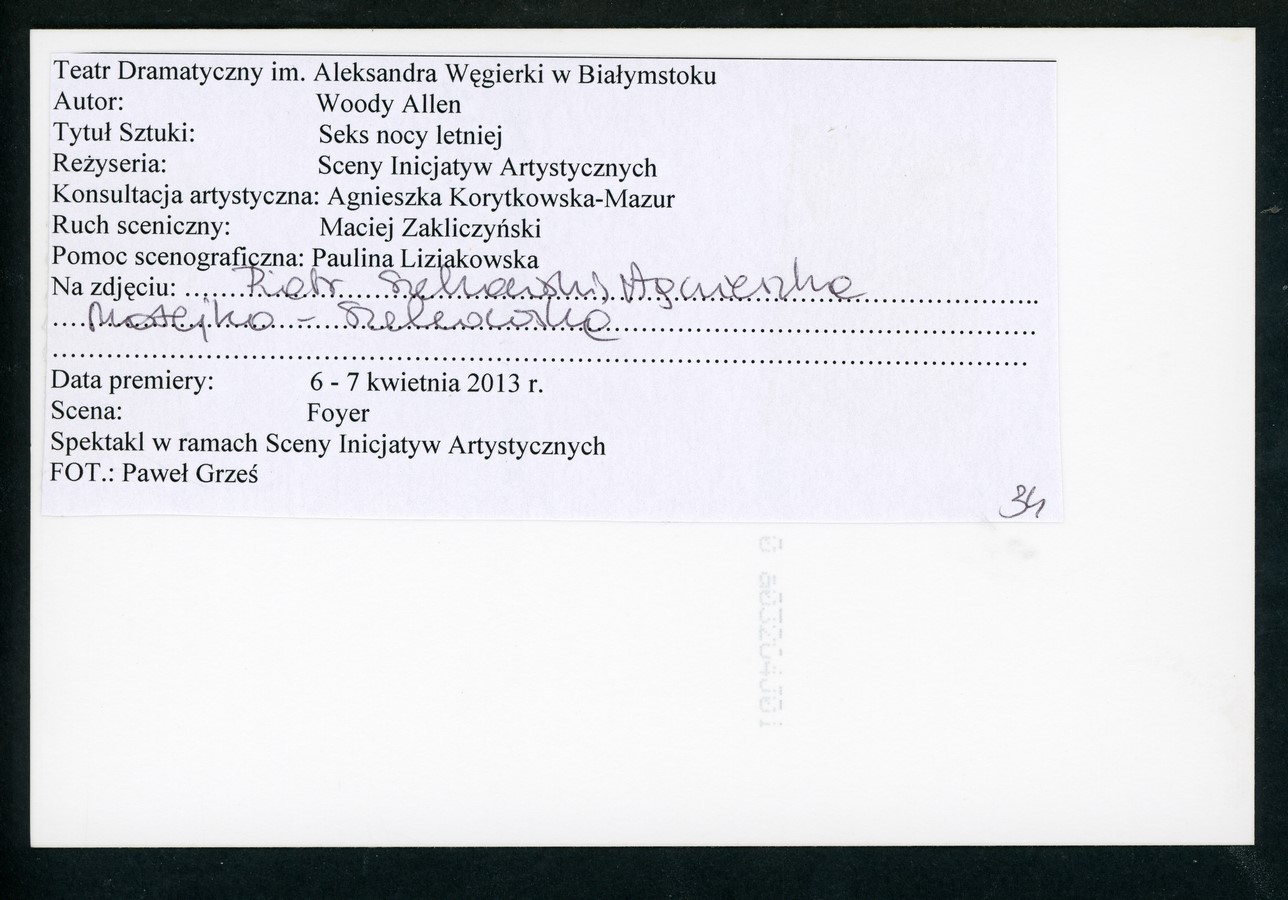 Teatr Dramatyczny im. Aleksandra Węgierki w Białymstoku
Autor: Woody Allen
Tytuł Sztuki: Seks nocy letniej
Reżyseria: Sceny Inicjatyw Artystycznych
Konsultacja artystyczna: Agnieszka Korytkowska-Mazur
Ruch sceniczny: Maciej Zakliczyński
Pomoc scenograficzna: Paulina Liziakowska
Na zdjęciu: Piotr Szekowski, Agnieszka
Matejko - Szekowska
Data premiery: 6 - 7 kwietnia 2013 r.
Scena: Foyer
Spektakl w ramach Sceny Inicjatyw Artystycznych
FOT.: Paweł Grześ
34